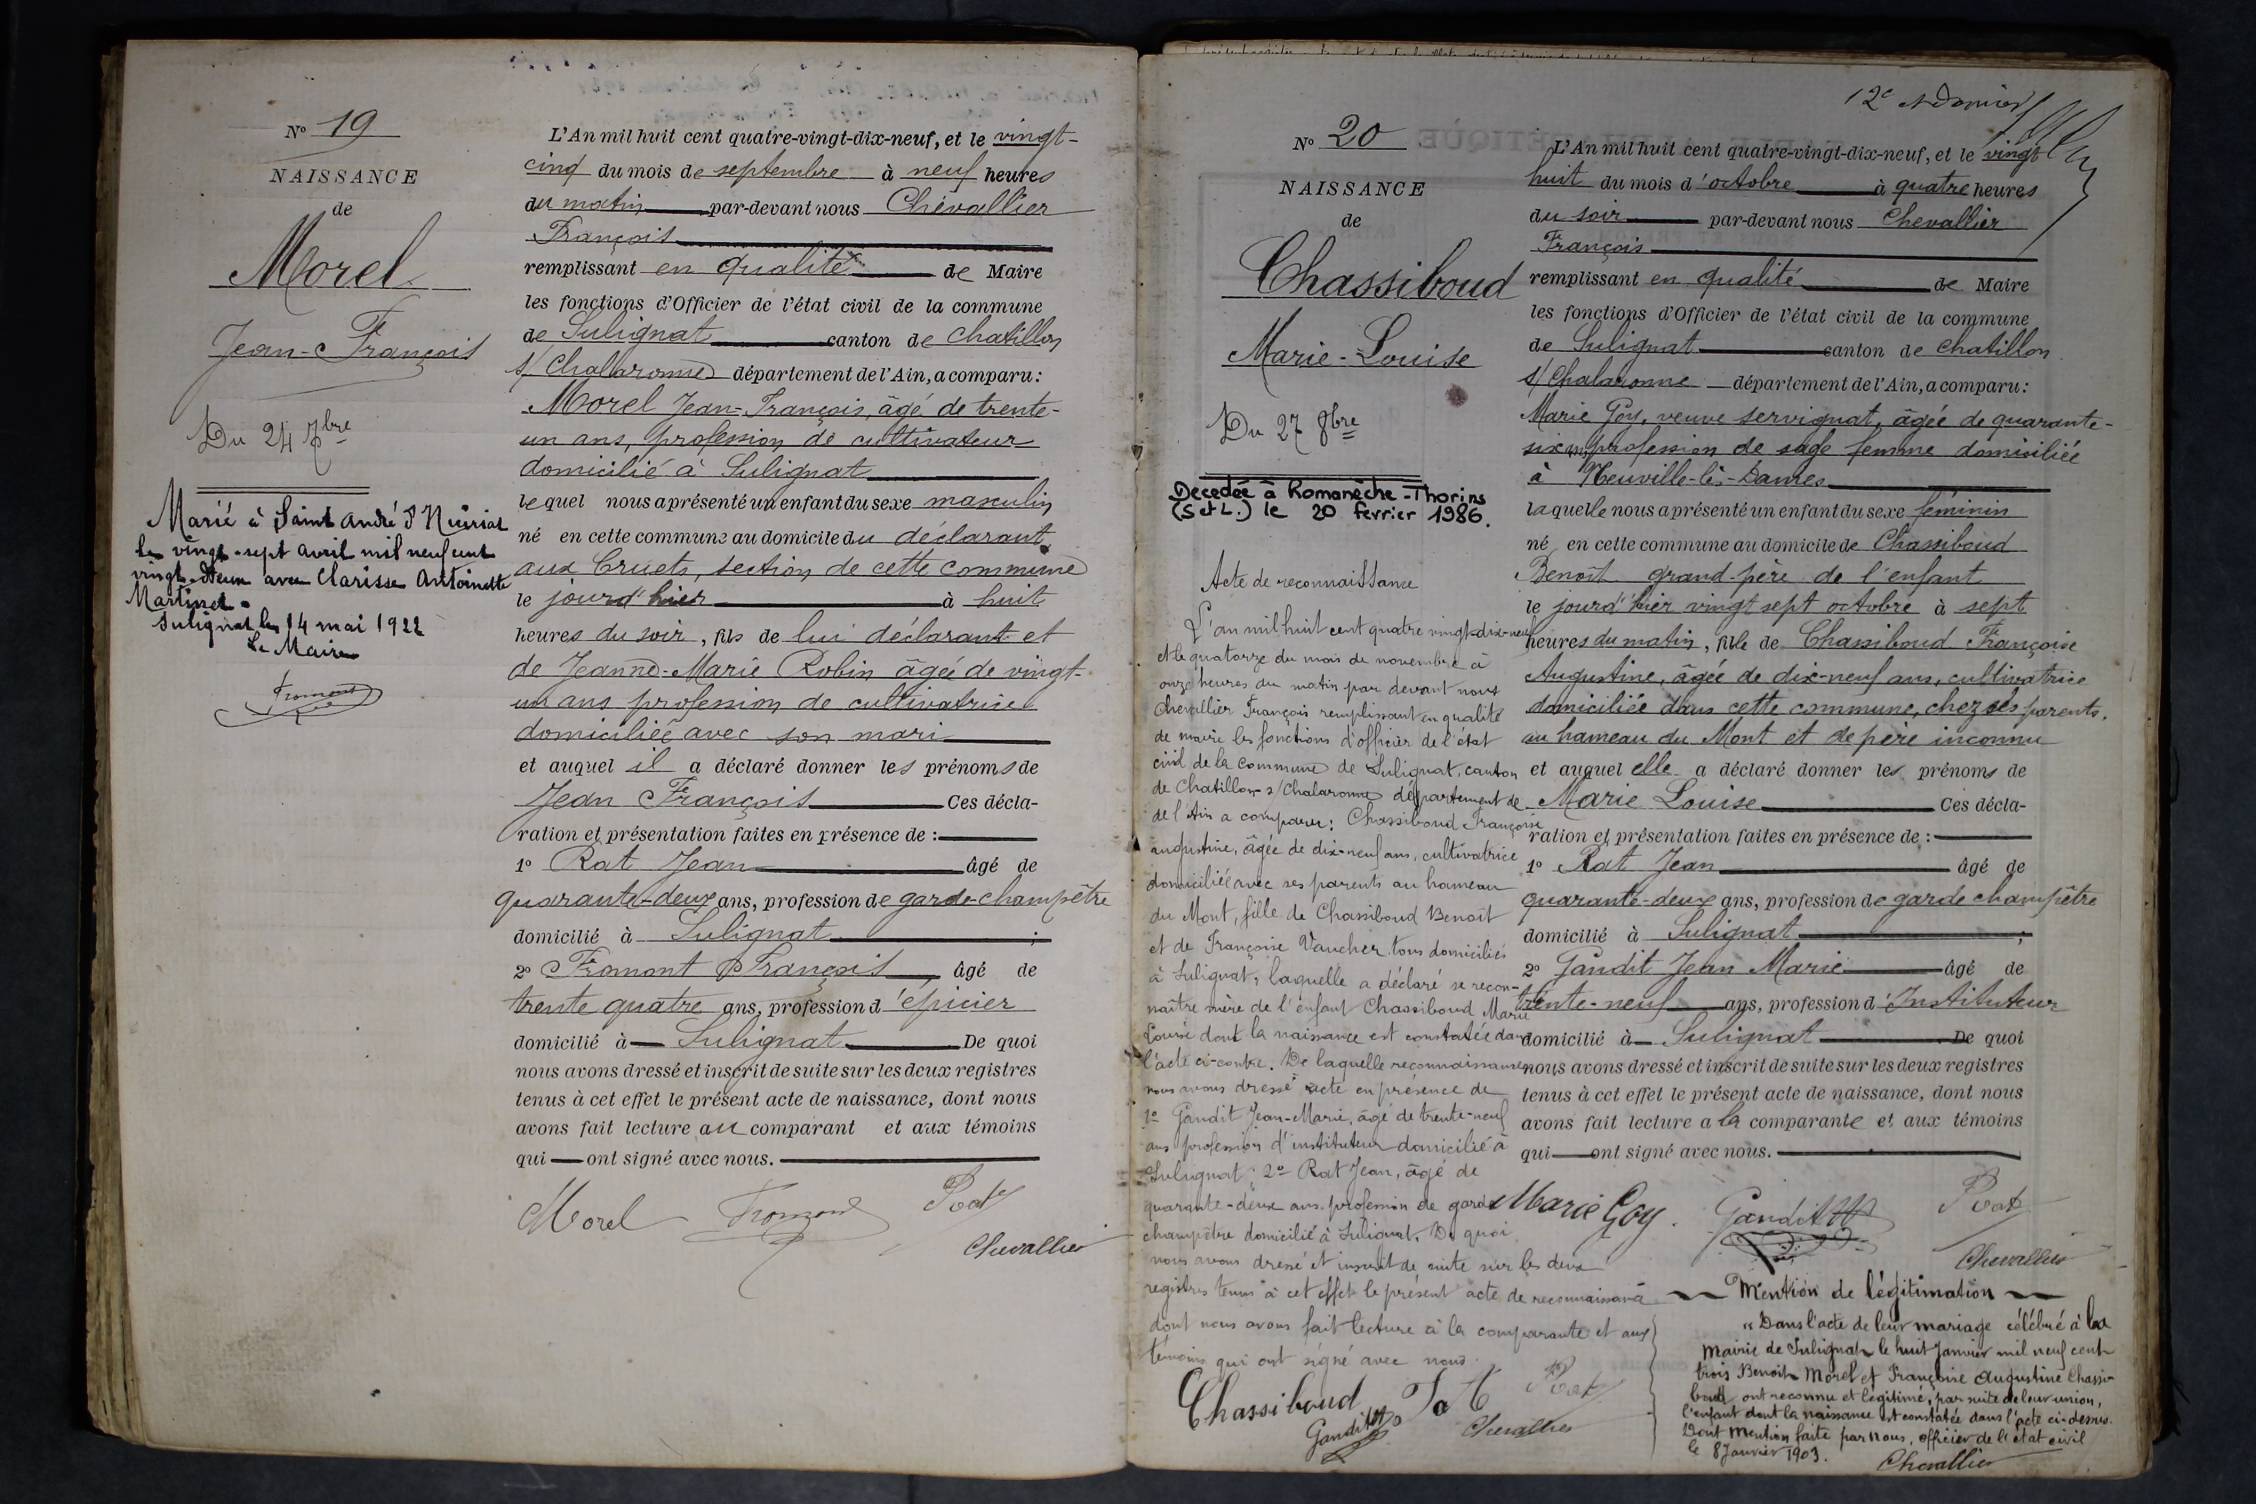 N° 19
NAISSANCE
de
Morel
Jean-François
Du 24 7bre
Marié à Saint André d'Huiriat
le vingt-sept avril mil neuf cent
vingt-deux avec Clarisse Antoinette
Martinet.
Sulignat le 14 mai 1922
Le Maire
Fromont
L'An mil huit cent quatre-vingt-dix-neuf, et le vingt-
cinq du mois de septembre à neuf heures
du matin par-devant nous Chevallier
François
remplissant en qualité de Maire
les fonctions d'Officier de l'état civil de la commune
de Sulignat canton de Chatillon
s/ Challaronne département de l'Ain, a comparu:
Morel Jean-François, âgé de trente-
un ans, profession de cultivateur
domicilié à Sulignat
lequel nous a présenté un enfant du sexe masculin
né en cette commune au domicile du déclarant
aux Cruets, section de cette commune
le jourd'hier à huit
heures du soir, fils de lui déclarant et
de Jeanne-Marie Robin âgée de vingt-
un ans profession de cultivatrice
domiciliée avec son mari
et auquel il a déclaré donner les prénoms de
Jean François Ces décla-
ration et présentation faites en présence de :
1° Rat Jean âgé de
quarante-deux ans, profession de garde-champêtre
domicilié à Sulignat ;
2° Fromont François âgé de
trente quatre ans, profession d'épicier
domicilié à Sulignat De quoi
nous avons dressé et inscrit de suite sur les deux registres
tenus à cet effet le présent acte de naissance, dont nous
avons fait lecture au comparant et aux témoins
qui ont signé avec nous.
Morel Fromont Rat
Chevallier
12e et dernier
N° 20
NAISSANCE
de
Chassiboud
Marie-Louise
Du 27 8bre
Decedée à Romanèche-Thorins
(S et L.) le 20 fevrier 1986.
Acte de reconnaissance
L'an mil huit cent quatre vingt-dix-neuf
et le quatorze du mois de novembre à
onze heures du matin par devant nous
Chevallier François remplissant en qualité
de maire les fonctions d'officier de l'état
civil de la commune de Sulignat, canton
de Chatillon s/Chalaronne département de
de l'Ain a comparu: Chassiboud Françoise
augustine, âgée de dix-neuf ans, cultivatrice
domiciliée avec ses parents au hameau
du Mont, fille de Chassiboud Benoît
et de Françoise Vaucher tous domiciliés
à Sulignat, laquelle a déclaré se recon-
naître mère de l'enfant Chassiboud Marie
Louise dont la naissance est constatée dans
l'acte ci-contre. De laquelle reconnaissance
nous avons dressé acte en présence de
1° Gandit Jean-Marie, âgé de trente-neuf
ans profession d'instituteur domicilié à
Sulignat; 2° Rat Jean, âgé de
quarante-deux ans profession de garde
champêtre domicilié à Sulignat. De quoi
nous avons dressé et inscrit de suite sur les deux
registres tenus à cet effet le présent acte de reconnaissance
dont nous avons fait lecture à la comparante et aux
témoins qui ont signé avec nous.
Chassiboud Rat
Gandit Chevallier
L'An mil huit cent quatre-vingt-dix-neuf, et le vingt
huit du mois d'octobre à quatre heures
du soir par-devant nous Chevallier
François
remplissant en qualité de Maire
les fonctions d'Officier de l'état civil de la commune
de Sulignat canton de Chatillon
s/ Chalaronne département de l'Ain, a comparu:
Marie Goy, veuve Servignat, âgée de quarante-
six ans, profession de sage femme domiciliée
à Neuville-les-Dames
laquelle nous a présenté un enfant du sexe féminin
né en cette commune au domicile de Chassiboud
Benoît grand-père de l'enfant
le jourd'hier vingt sept octobre à sept
heures du matin, fille de Chassiboud Françoise
Augustine, âgée de dix-neuf ans, cultivatrice
domiciliée dans cette commune, chez ses parents,
au hameau du Mont et de père inconnu
et auquel elle a déclaré donner les prénoms de
Marie Louise Ces décla-
ration et présentation faites en présence de :
1° Rat Jean âgé de
quarante-deux ans, profession de garde champêtre
domicilié à Sulignat ;
2° Gandit Jean Marie âgé de
trente-neuf ans, profession d'Instituteur
domicilié à Sulignat De quoi
nous avons dressé et inscrit de suite sur les deux registres
tenus à cet effet le présent acte de naissance, dont nous
avons fait lecture a la comparante et aux témoins
qui ont signé avec nous.
Marie Goy. Gandit Rat
Chevallier
Mention de légitimation
"Dans l'acte de leur mariage célébré à la
Mairie de Sulignat le huit Janvier mil neuf cent
trois Benoît Morel et Françoise Augustine Chassi-
boud ont reconnu et légitimé, par suite de leur union,
l'enfant dont la naissance est constatée dans l'acte ci-dessus.
Dont mention faite par nous, officier de l'état civil
le 8 Janvier 1903.
Chevallier